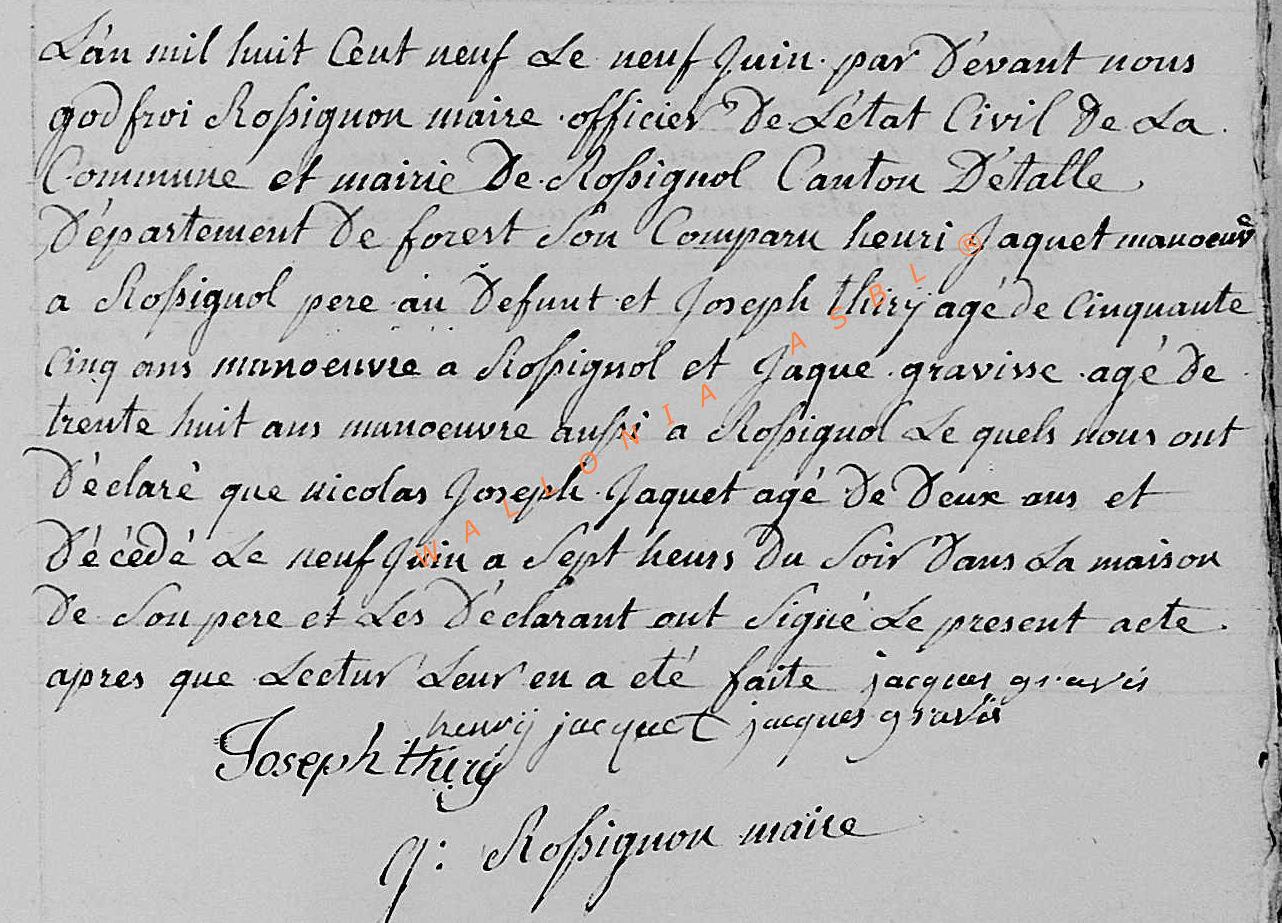 L'an mil huit Cent neuf Le neuf Juin par D'évant nous
godfroi Rossignon maire officier De L'état Civil De La
Commune et mairie De Rossignol Canton D'étalle
Département De forest Son Comparu henri Jaquet manoeuv
a Rossignol pere au Defunt et Joseph thirÿ agé de Cinquante
Cinq ans manoeuvre a Rossignol et Jaque gravisse agé De
trente huit ans manoeuvre aussi a Rossignol Le quels nous ont
Déclaré que nicolas Joseph Jaquet agé De Deux ans et
Décédé Le neuf Juin a Sept heurs Du Soir Dans La maison
De Son pere et Les Déclarant ont Signé Le present acte
apres que Lectur Leur en a eté faite jacques gravis
henrij jacquet jacques gravis
Joseph thirÿ
g: Rossignon maire
WALLONIA ASBL ®